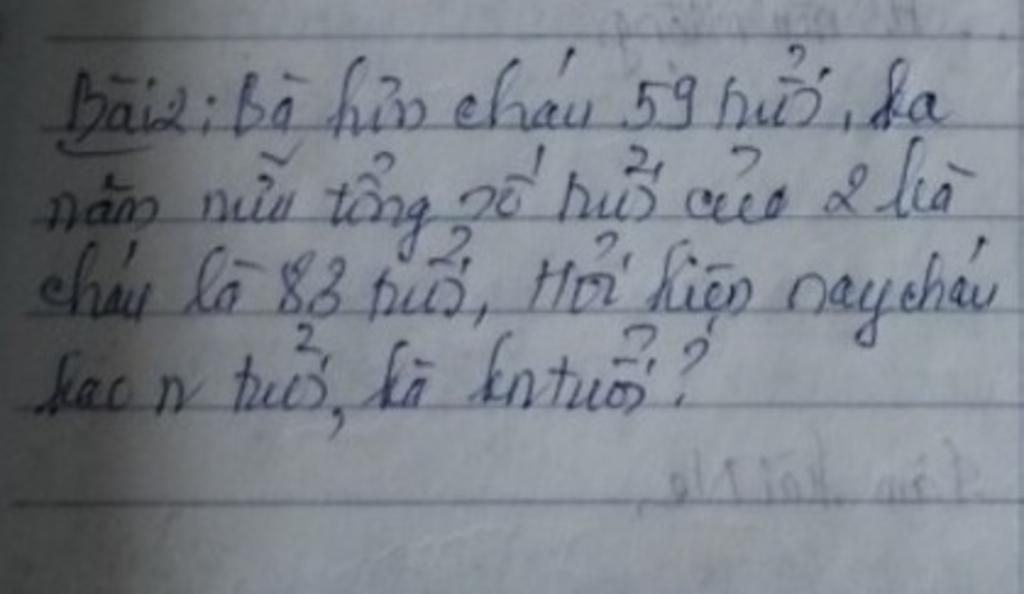 Bài 2: Bà hơn cháu 59 tuổi, ba
năm nữa tổng số tuổi của 2 bà
cháu là 83 tuổi, Hỏi hiện nay cháu
bao n tuổi, bà bn tuổi?